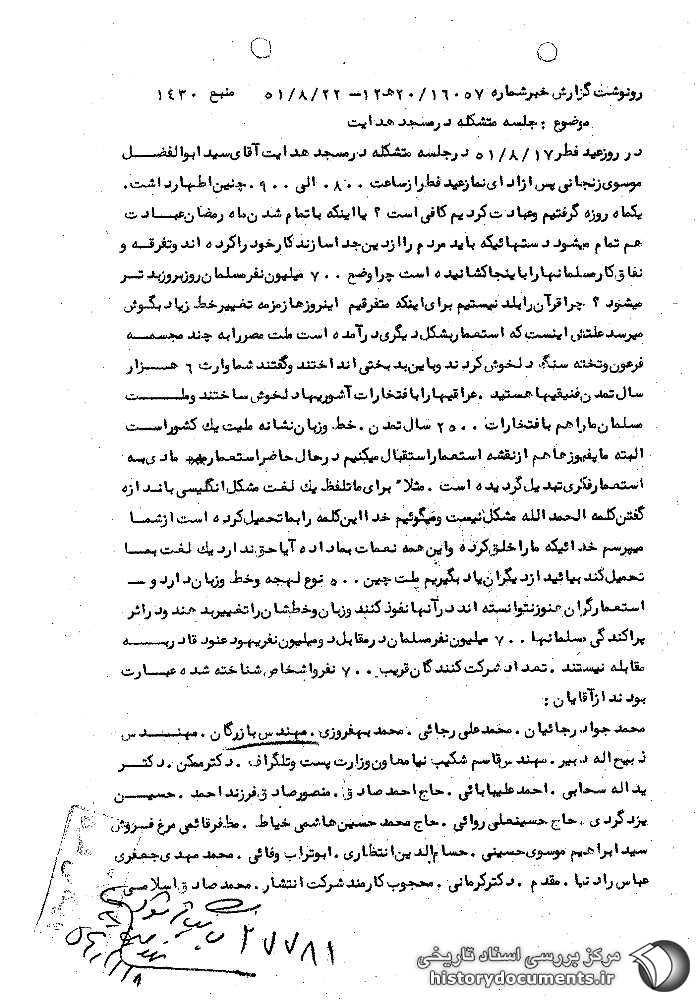 رونوشت گزارش خبر شماره ۱۶۰۵۷/۲۰هـ۱۲ – ۵۱/۸/۲۲ منبع ۱۴۳۰
موضوع : جلسه متشکله در مسجد هدایت
در روز عید فطر ۵۱/۸/۱۷ در جلسه متشکله در مسجد هدایت آقای سید ابوالفضل
موسوی زنجانی پس از ادای نماز عید فطر از ساعت ۰۸۰۰ الی ۰۹۰۰ چنین اظهار داشت .
یکماه روزه گرفتیم و عبادت کردیم کافی است ؟ یا اینکه با تمام شدن ماه رمضان عبادت
هم تمام میشود دستهائیکه باید مردم را از دین جدا سازند کار خود را کرده اند و تفرقه و
نفاق کار مسلمانها را باینجا کشانیده است چرا وضع ۷۰۰ میلیون نفر مسلمان روز بروز بد تر
میشود ؟ چرا قرآن را بلد نیستیم برای اینکه متفرقیم اینروزها زمزمه تغییر خط زیاد بگوش
میرسد علتش اینست که استعمار بشکل دیگری در آمده است ملت مصر را به چند مجسمه
فرعون و تخته سنگ دلخوش کردند و باین بد بختی انداختند و گفتند شما وارث ۶ هزار
سال تمدن فنیقیها هستید . عراقیها را با فتخارات آشوریها دلخوش ساختند و ملت
مسلمان ما را هم با فتخارات ۲۵۰۰ سال تمدن . خط و زبان نشانه ملیت یک کشور است
البته ما یفیوزها هم از نقشه استعمار استقبال میکنیم در حال حاضر استعمار مادی به
استعمار فکری تبدیل گردیده است . مثلا" برای ما تلفظ یک لغت مشکل انگلیسی باندازه
گفتن کلمه الحمد الله مشکل نیست و میگوئیم خدا این کلمه را بما تحمیل کرده است از شما
میپرسم خدائیکه ما را خلق کرده و این همه نعمات بما داده آیا حق ندارد یک لغت بما
تحمیل کند بیائید از دیگران یاد بگیریم ملت چین ۵۰۰ نوع لهجه و خط و زبان دارد و –
استعمارگران هنوز نتوانسته اند در آنها نفوذ کنند و زبان و خطشان را تغییر بدهند و در اثر
پراکندگی مسلمانها ۷۰۰ میلیون نفر مسلمان در مقابل دو میلیون نفر یهود عنود قادر به
مقابله نیستند . تعداد شرکت کنندگان قریب ۷۰۰ نفر و اشخاص شناخته شده عبارت
بودند از آقایان :
محمد جواد رجائیان . محمد علی رجائی . محمد بهفروزی . مهندس بازرگان . مهندس
ذبیح اله دبیر . مهندس قاسم شکیب نیا معاون وزارت پست و تلگراف . دکتر ممکن . دکتر
یداله سحابی . احمد علیبابائی . حاج احمد صادق . منصور صادق فرزند احمد . حسین
یزد گردی . حاج حسینعلی روائی . حاج محمد حسین هاشمی خیاط . مظفر قائمی مرغ فروش
سید ابراهیم موسوی حسینی . حسام الدین انتظاری . ابوتراب وفائی . محمد مهدی جعفری
عباس راد نیا . مقدم . دکتر کرمانی . محجوب کارمند شرکت انتشار . محمد صادق اسلامی
۲۷۷۸۱
مرکز بررسی اسناد تاریخی
historydocuments.ir